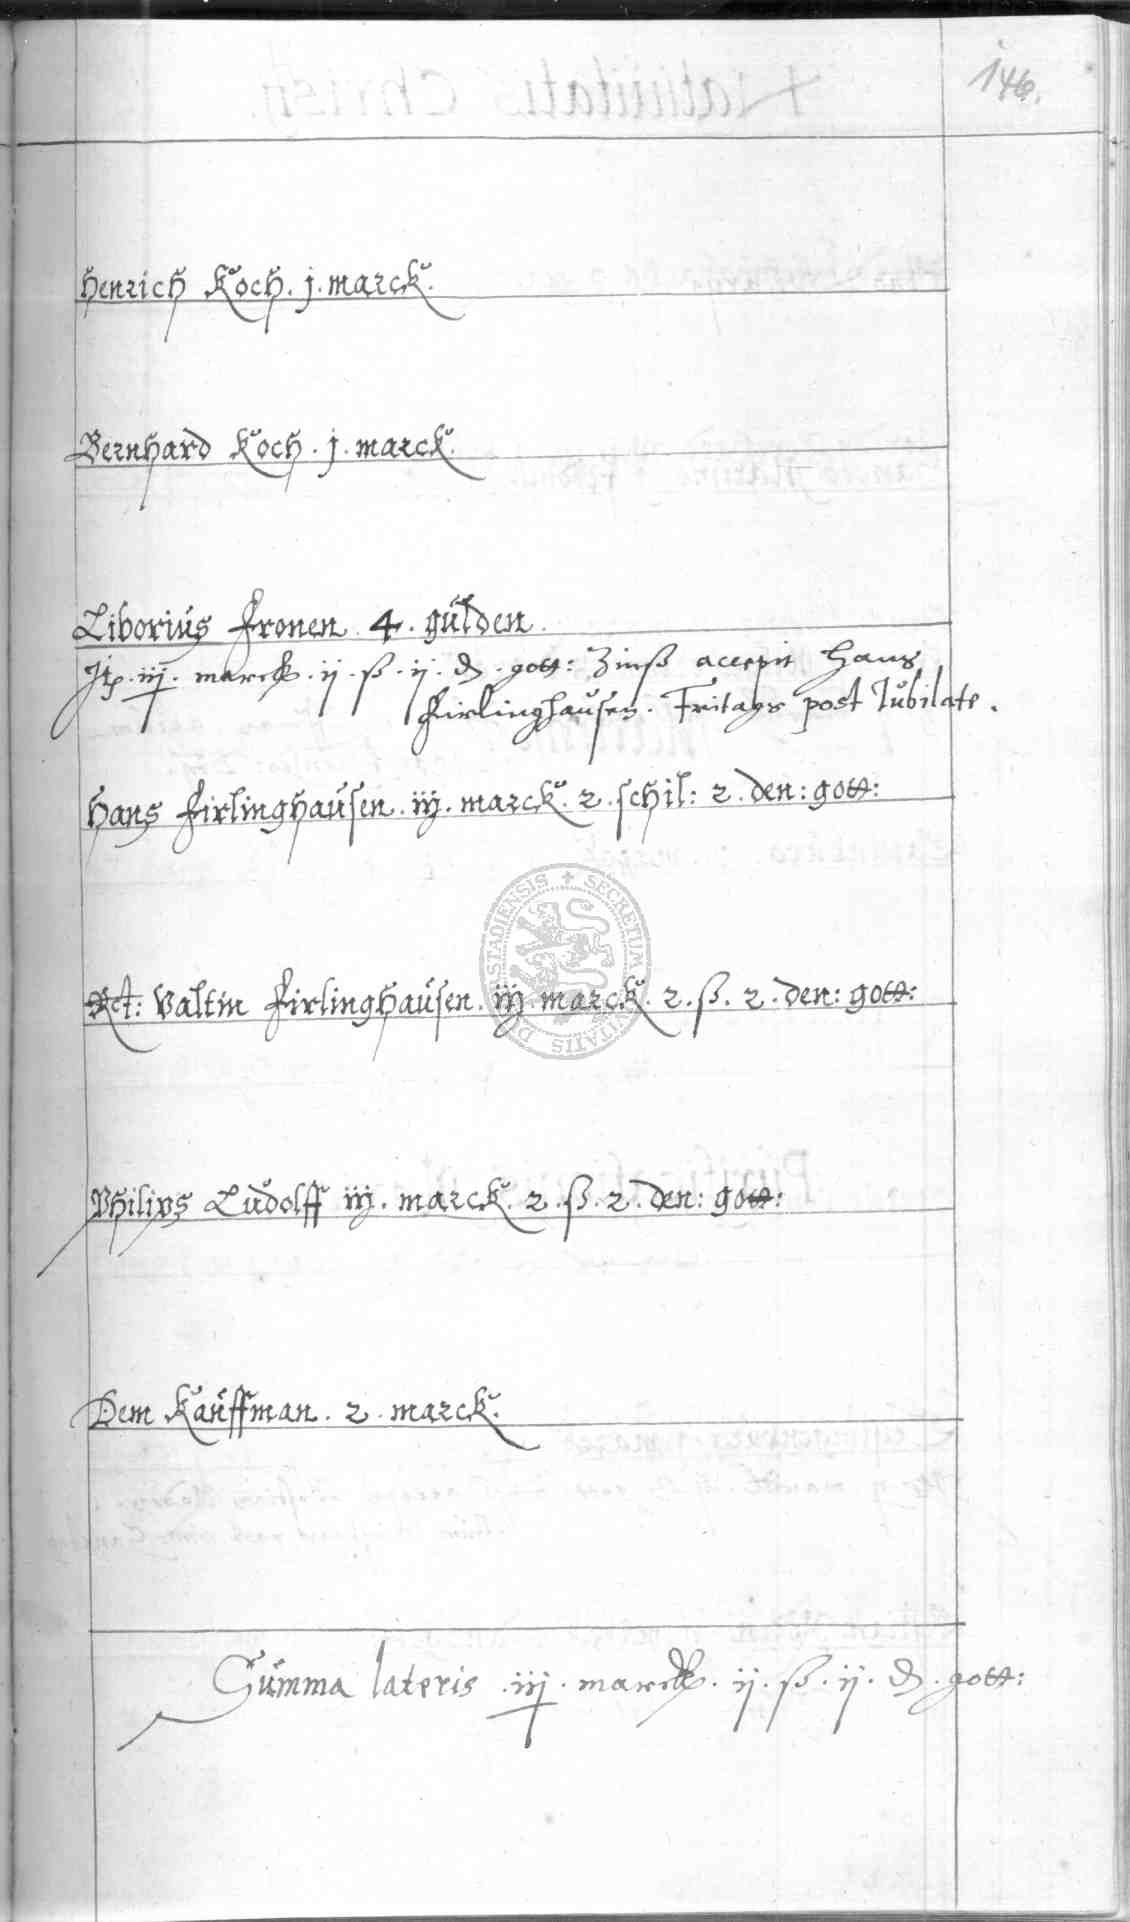 146.
Henrich Koch. j. marck.
Bernhard Koch. j. marck.
Liborius Fronen. 4. gulden.
Itp. iiij. marck. ij. ß. ij. d. gott: Zinß accepit Hans
Firlinghausen. Fritags post Jubilate.
Hans Firlinghausen. iij. marck. 2. schil: 2. den: gott:
Valtin Firlinghausen. iij. marck. 2. ß. 2. den: gott:
Philips Ludolff iij. marck. 2. ß. 2. den: gott:
Dem Kauffman. 2. marck.
Summa lateris .iiij. marck. ij. ß. ij. d. gott:
STADIENSIS + SECRETUM